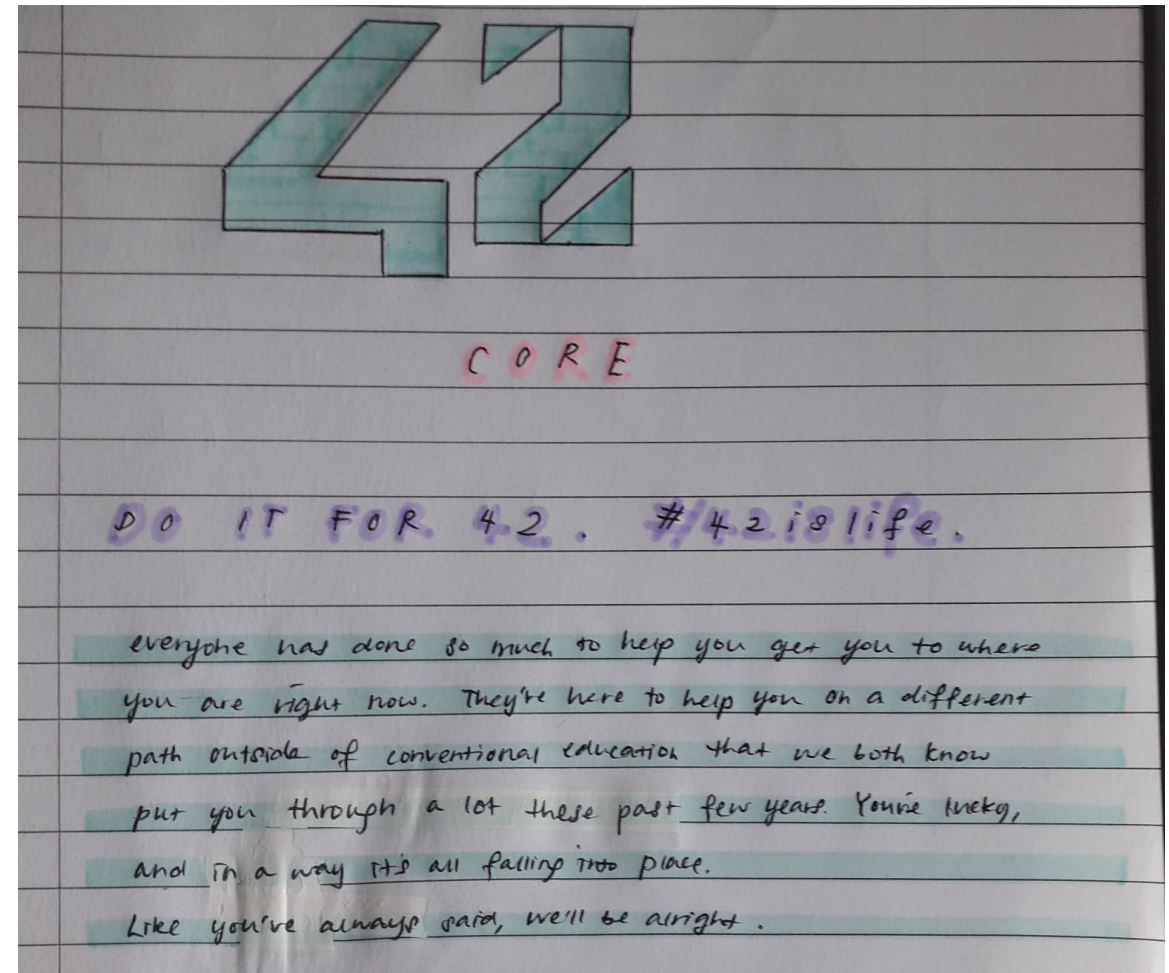 42
CORE
DO IT FOR 42. #42islife.
everyone has done so much to help you get you to where
you are right now. They're here to help you on a different
path outside of conventional education that we both know
put you through a lot these past few years. You're lucky,
and in a way it's all falling into place.
Like you've always said, we'll be alright.